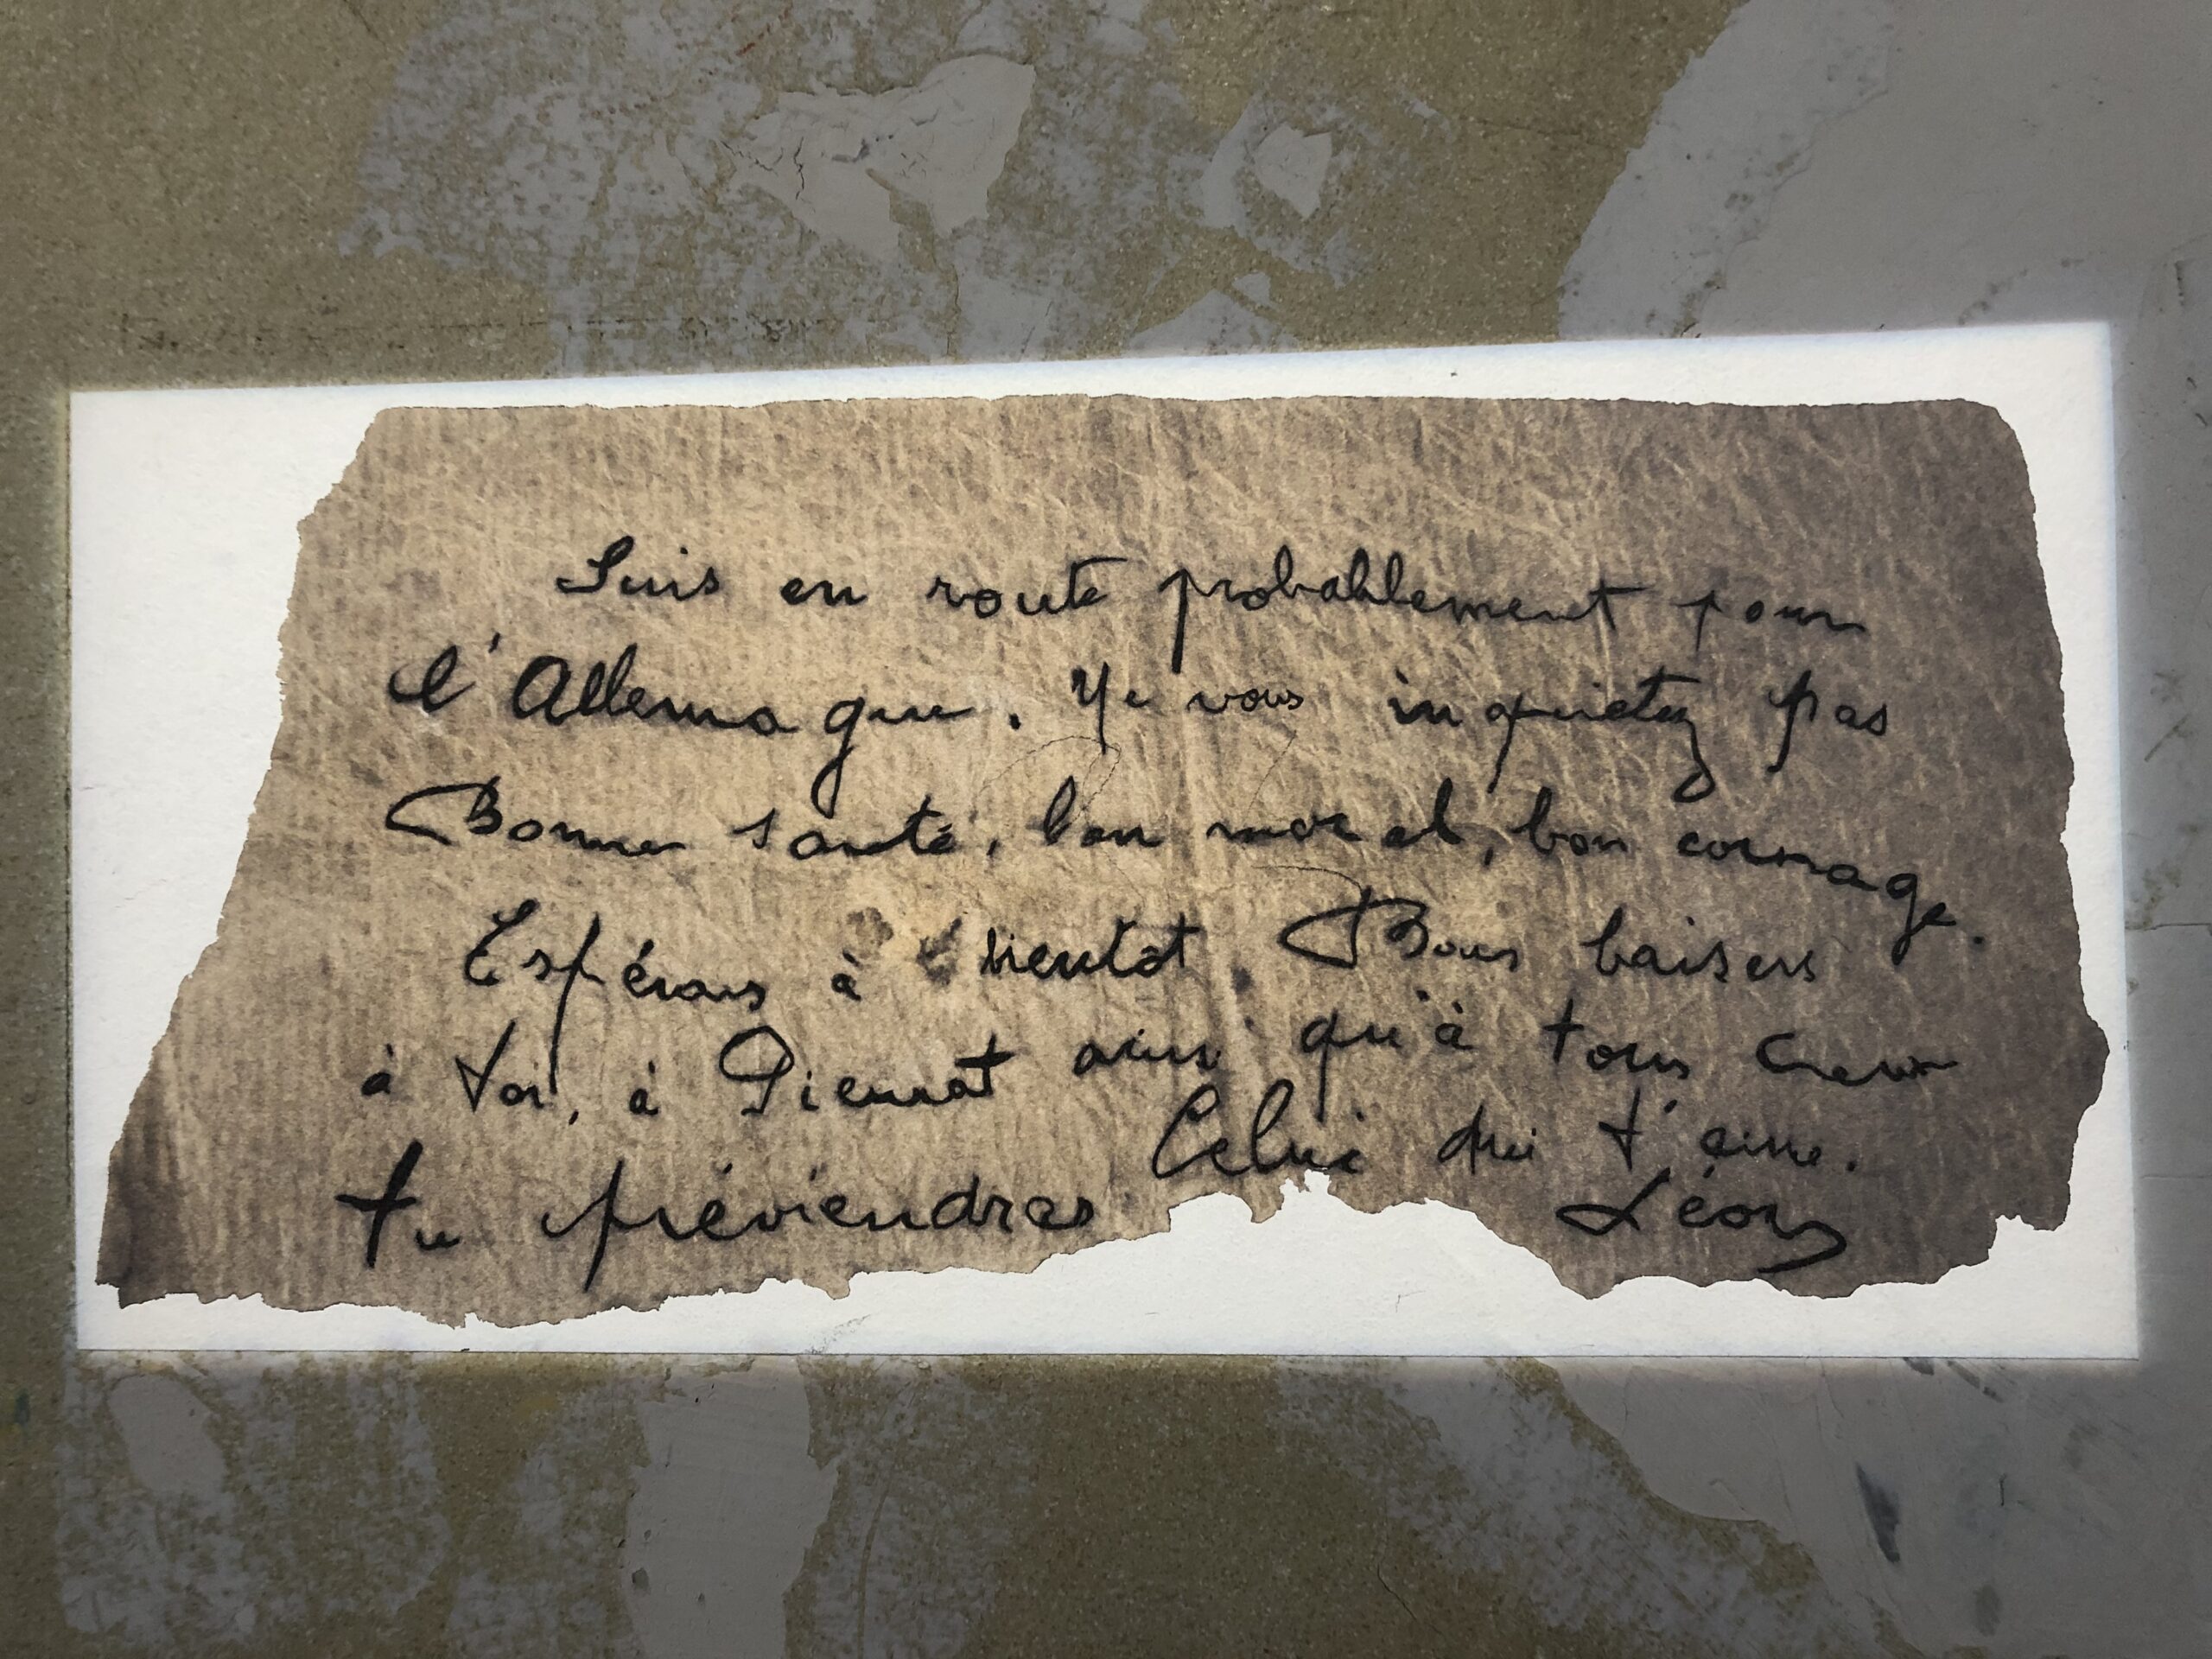 Suis en route probablement pour
l'Allemagne. Ne vous inquietez pas
Bonne santé, bon moral, bon courage.
Espérons à bientot Bons baisers
à toi, à Pierrot ainsi qu'à tous ceux
Celui qui t'aime.
tu préviendras Léon